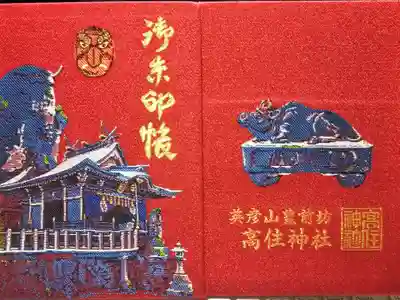 御朱印帳
英彦山豊前坊
高住神社
高住
神社